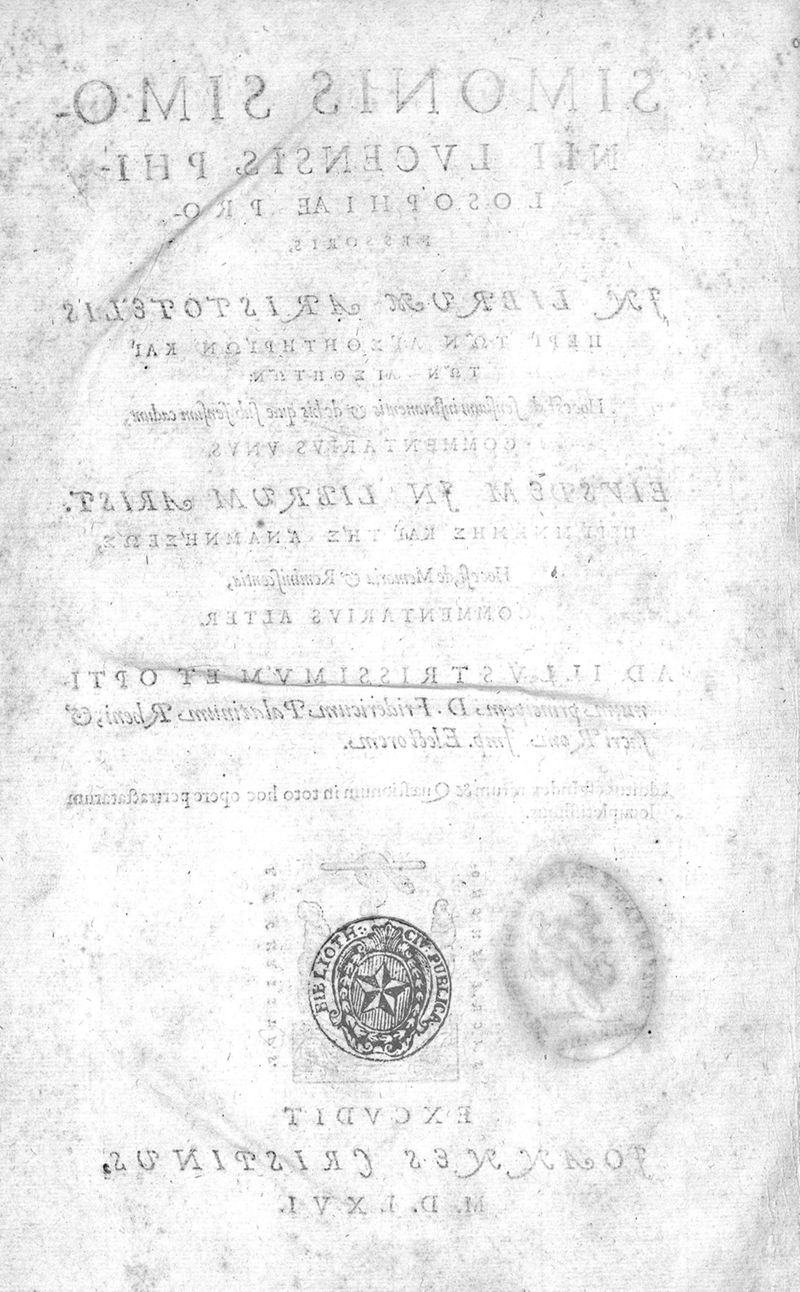 SIMONIS SIMO-
NII LVCENSIS, PHI-
LOSOPHIAE PRO-
FESSORIS,
IN LIBRVM ARISTOTELIS
ΠΕΡΙ' ΤΩ͂Ν ΑἸΣΘΗΤΗΡΊΩΝ ΚΑῚ
ΤΩ͂Ν ΑἸΣΘΗΤΩ͂Ν:
Hoc est, de sensuum instrumentis & de his quæ sub sensum cadunt,
COMMENTARIVS VNVS.
EIVSDEM IN LIBRVM ARIST.
ΠΕΡῚ ΜΝΉΜΗΣ ΚΑῚ ΤΗ͂Σ ἈΝΑΜΝΉΣΕΩΣ,
Hoc est, de Memoria & Reminiscentia,
COMMENTARIVS ALTER.
AD ILLVSTRISSIMVM ET OPTI-
mum principem D. Fridericum Palatinum Rheni, &
sacri Rom. Imp. Electorem.
Index rerum & Quæstionum in toto hoc opere pertractatarum
completissimus.
BIBLIOTH: CIV. PUBLICA
EXCVDIT
IOANNES CRISTINVS,
M. D. LXVI.